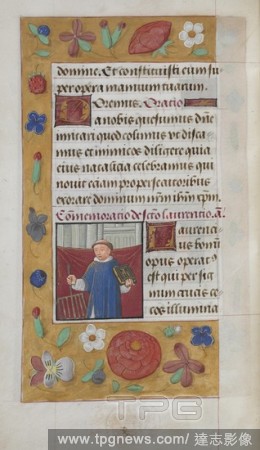 domine. Et constituisti eum su
per opera manuum tuarum.
Oremus. Oratio
Da nobis quesumus dñe
imitari quod colimus vt disca
mus et inimicos diligere quia
eius natalicia celebramus qui
novit eciam pro persecutoribus
exorare dominum nrm ihm xpm.
Comemoracio de scõ laurentio. añ
Laurenci
us bonũ
opus operat9
est qui per sig
num crucis ce
cos illumina
TPG
www.tpgnews.com/ 達志影像